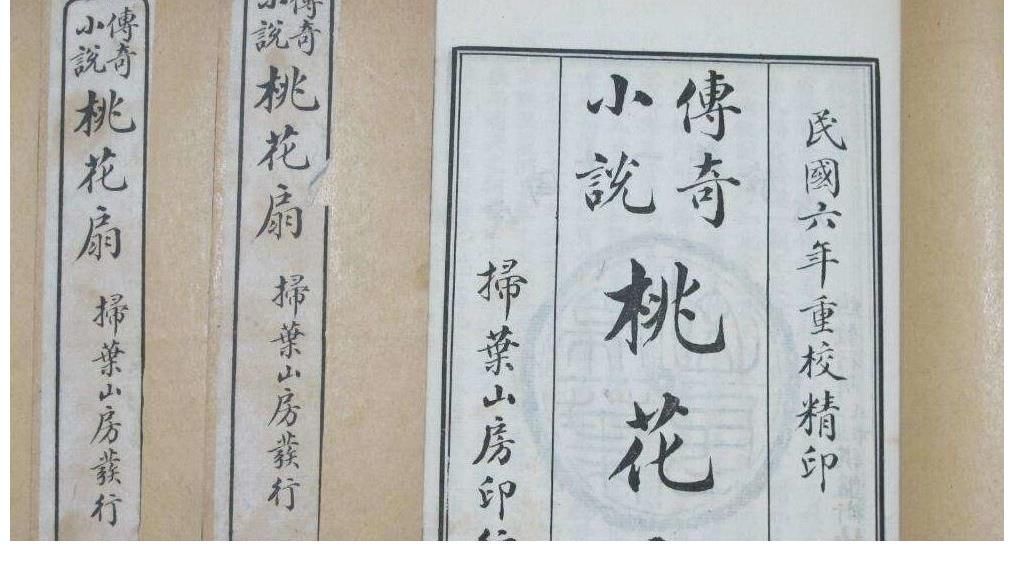 民國六年重校精印
傳奇
小說
桃花
掃葉山房印行
傳奇
小說
桃花扇
掃葉山房發行
傳奇
小說
桃花扇
掃葉山房發行